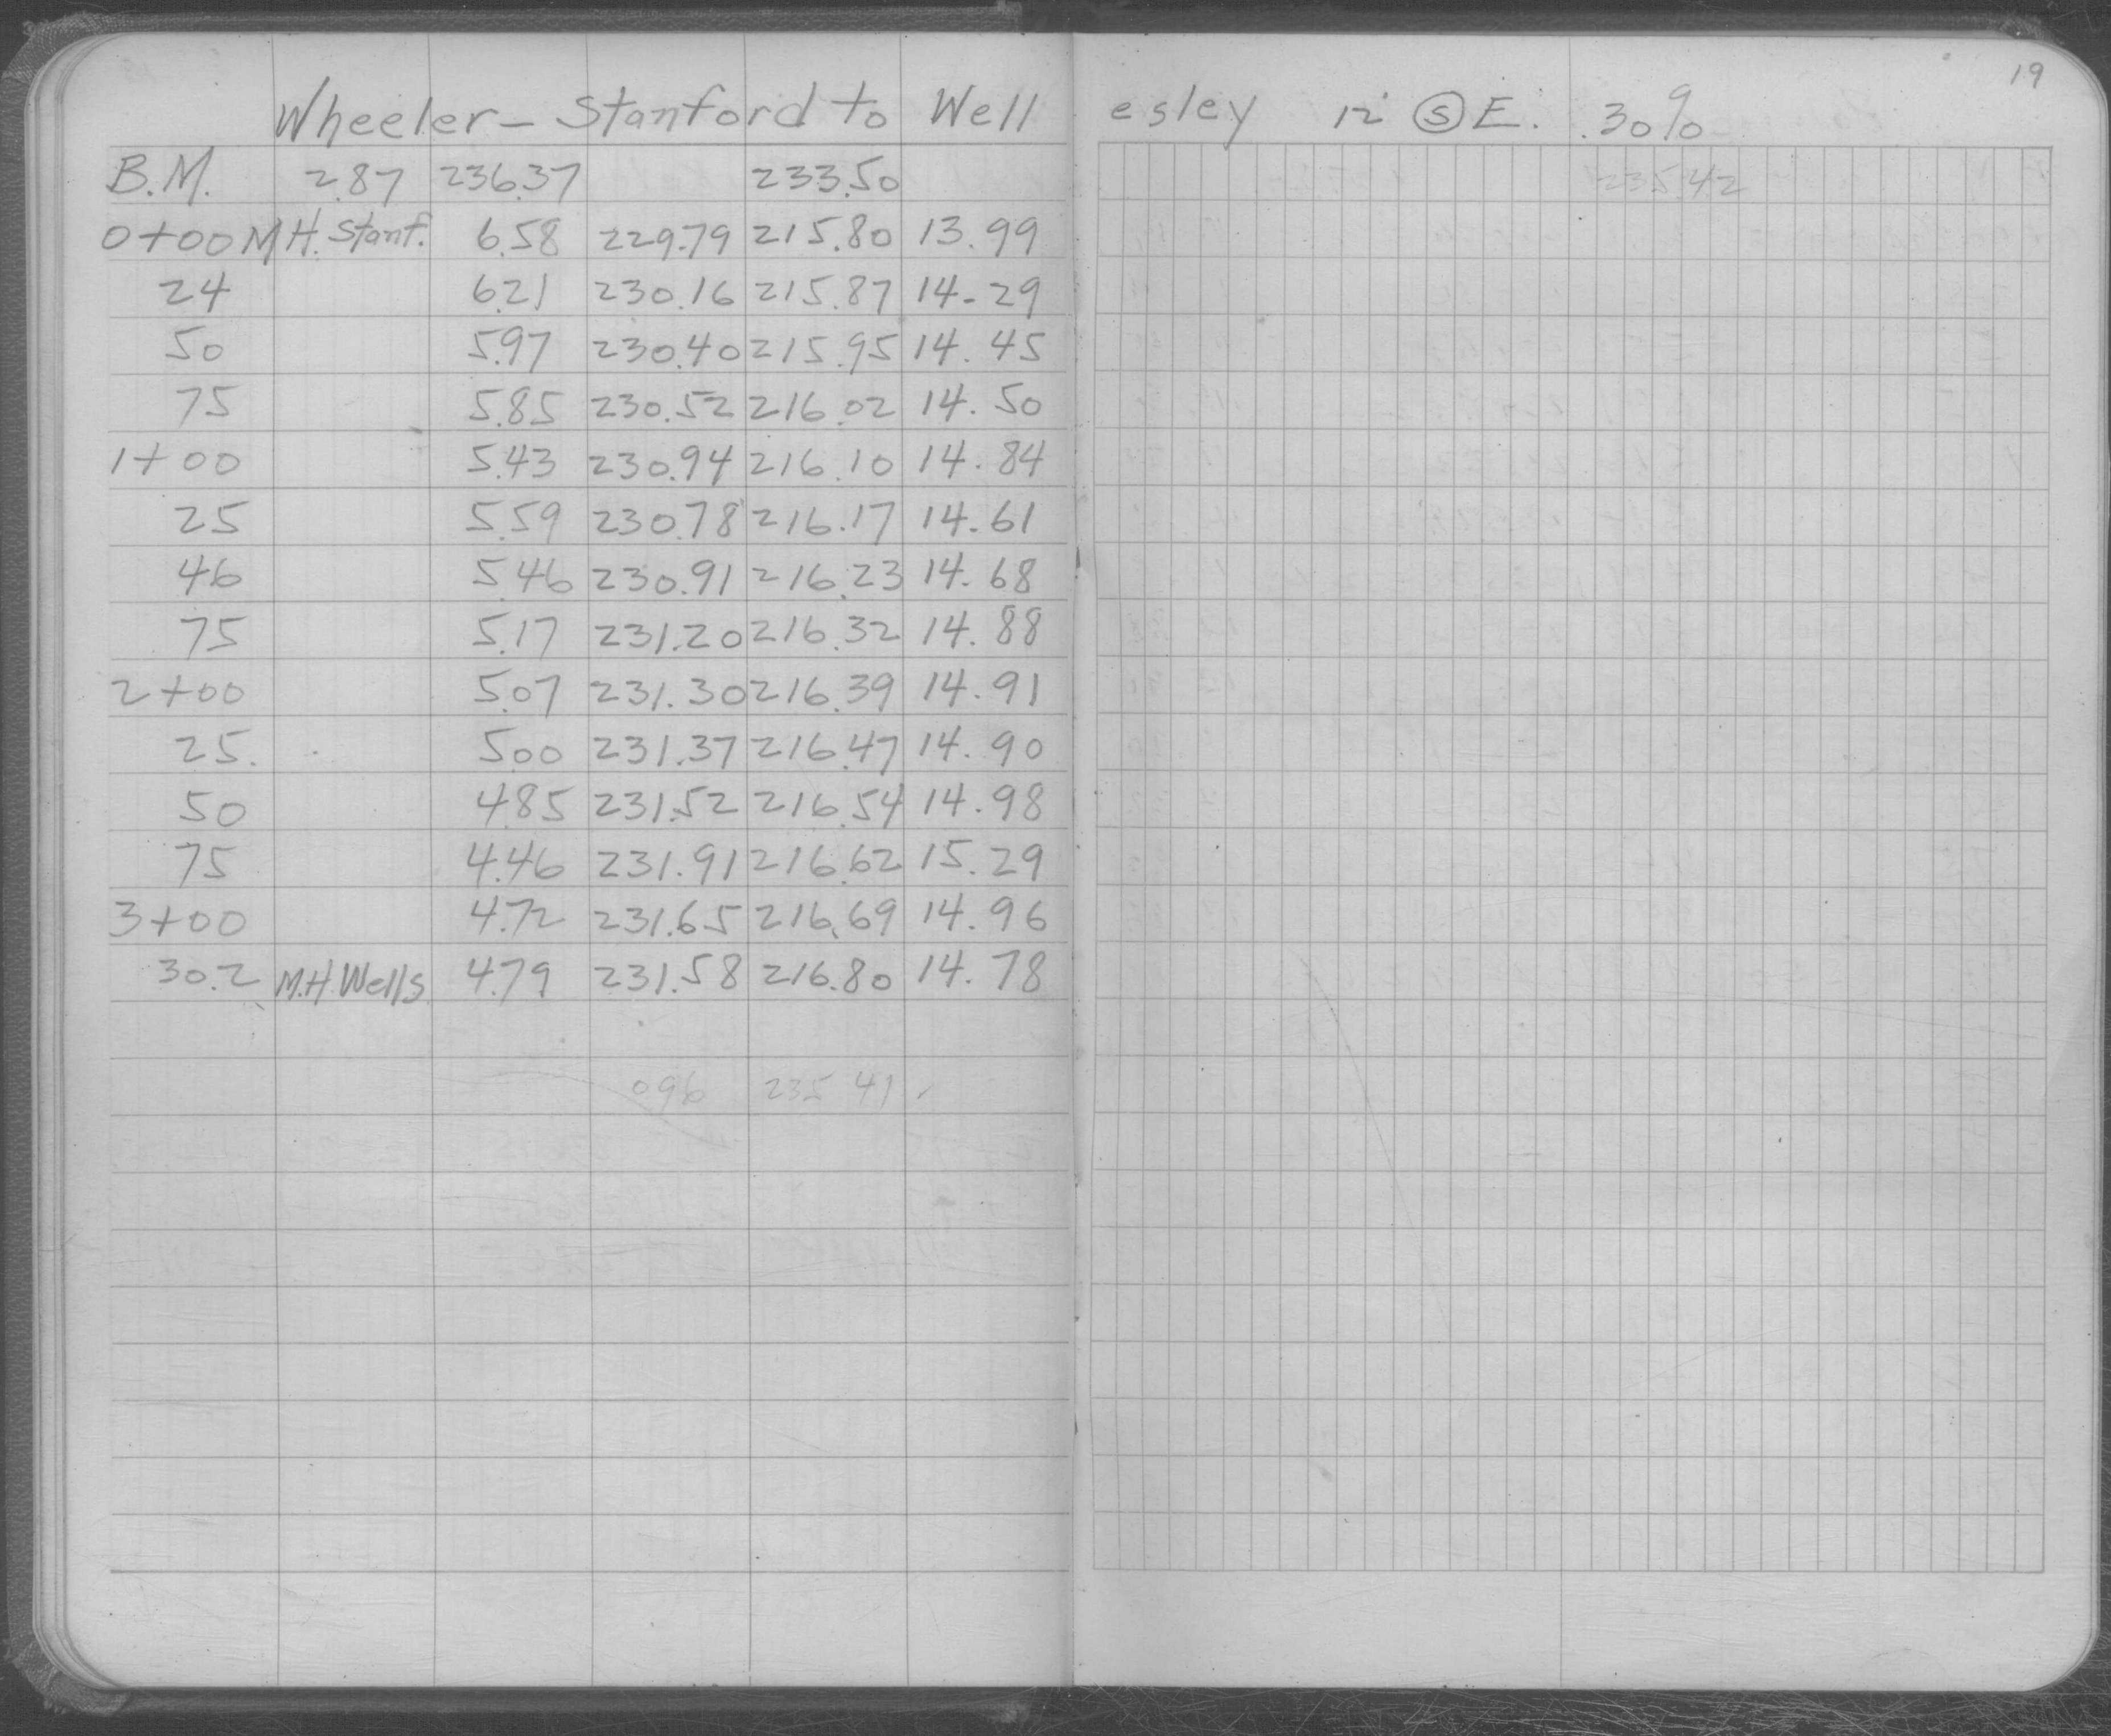 19
Wheeler - Stanford to Wellesley 12" Ⓢ E. .30%
B.M. 2.87 236.37 233.50 235.42
0+00 M.H. Stanf. 6.58 229.79 215.80 13.99
24 6.21 230.16 215.87 14.29
50 5.97 230.40 215.95 14.45
75 5.85 230.52 216.02 14.50
1+00 5.43 230.94 216.10 14.84
25 5.59 230.78 216.17 14.61
46 5.46 230.91 216.23 14.68
75 5.17 231.20 216.32 14.88
2+00 5.07 231.30 216.39 14.91
25. 5.00 231.37 216.47 14.90
50 4.85 231.52 216.54 14.98
75 4.46 231.91 216.62 15.29
3+00 4.72 231.65 216.69 14.96
30.2 M.H. Wells 4.79 231.58 216.80 14.78
096 235 41